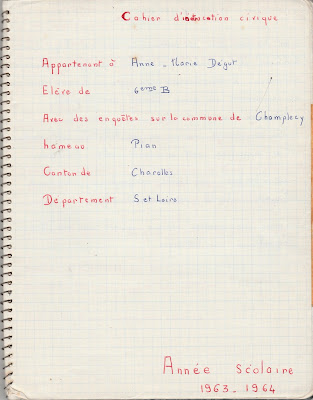 Cahier d'éducation civique
Appartenant à Anne-Marie Degut
Elève de 6eme B
Avec des enquêtes sur la commune de Champlecy
hameau Pian
Canton de Charolles
Département S et Loire
Année scolaire
1963-1964